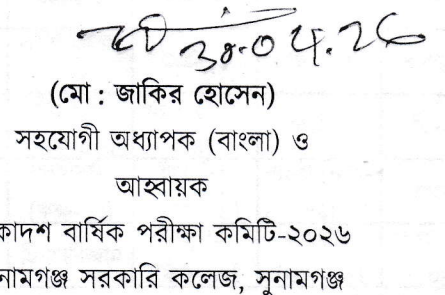 (মো : জাকির হোসেন)
সহযোগী অধ্যাপক (বাংলা) ও
আহবায়ক
কাদশ বার্ষিক পরীক্ষা কমিটি-২০২৬
নামগঞ্জ সরকারি কলেজ, সুনামগঞ্জ